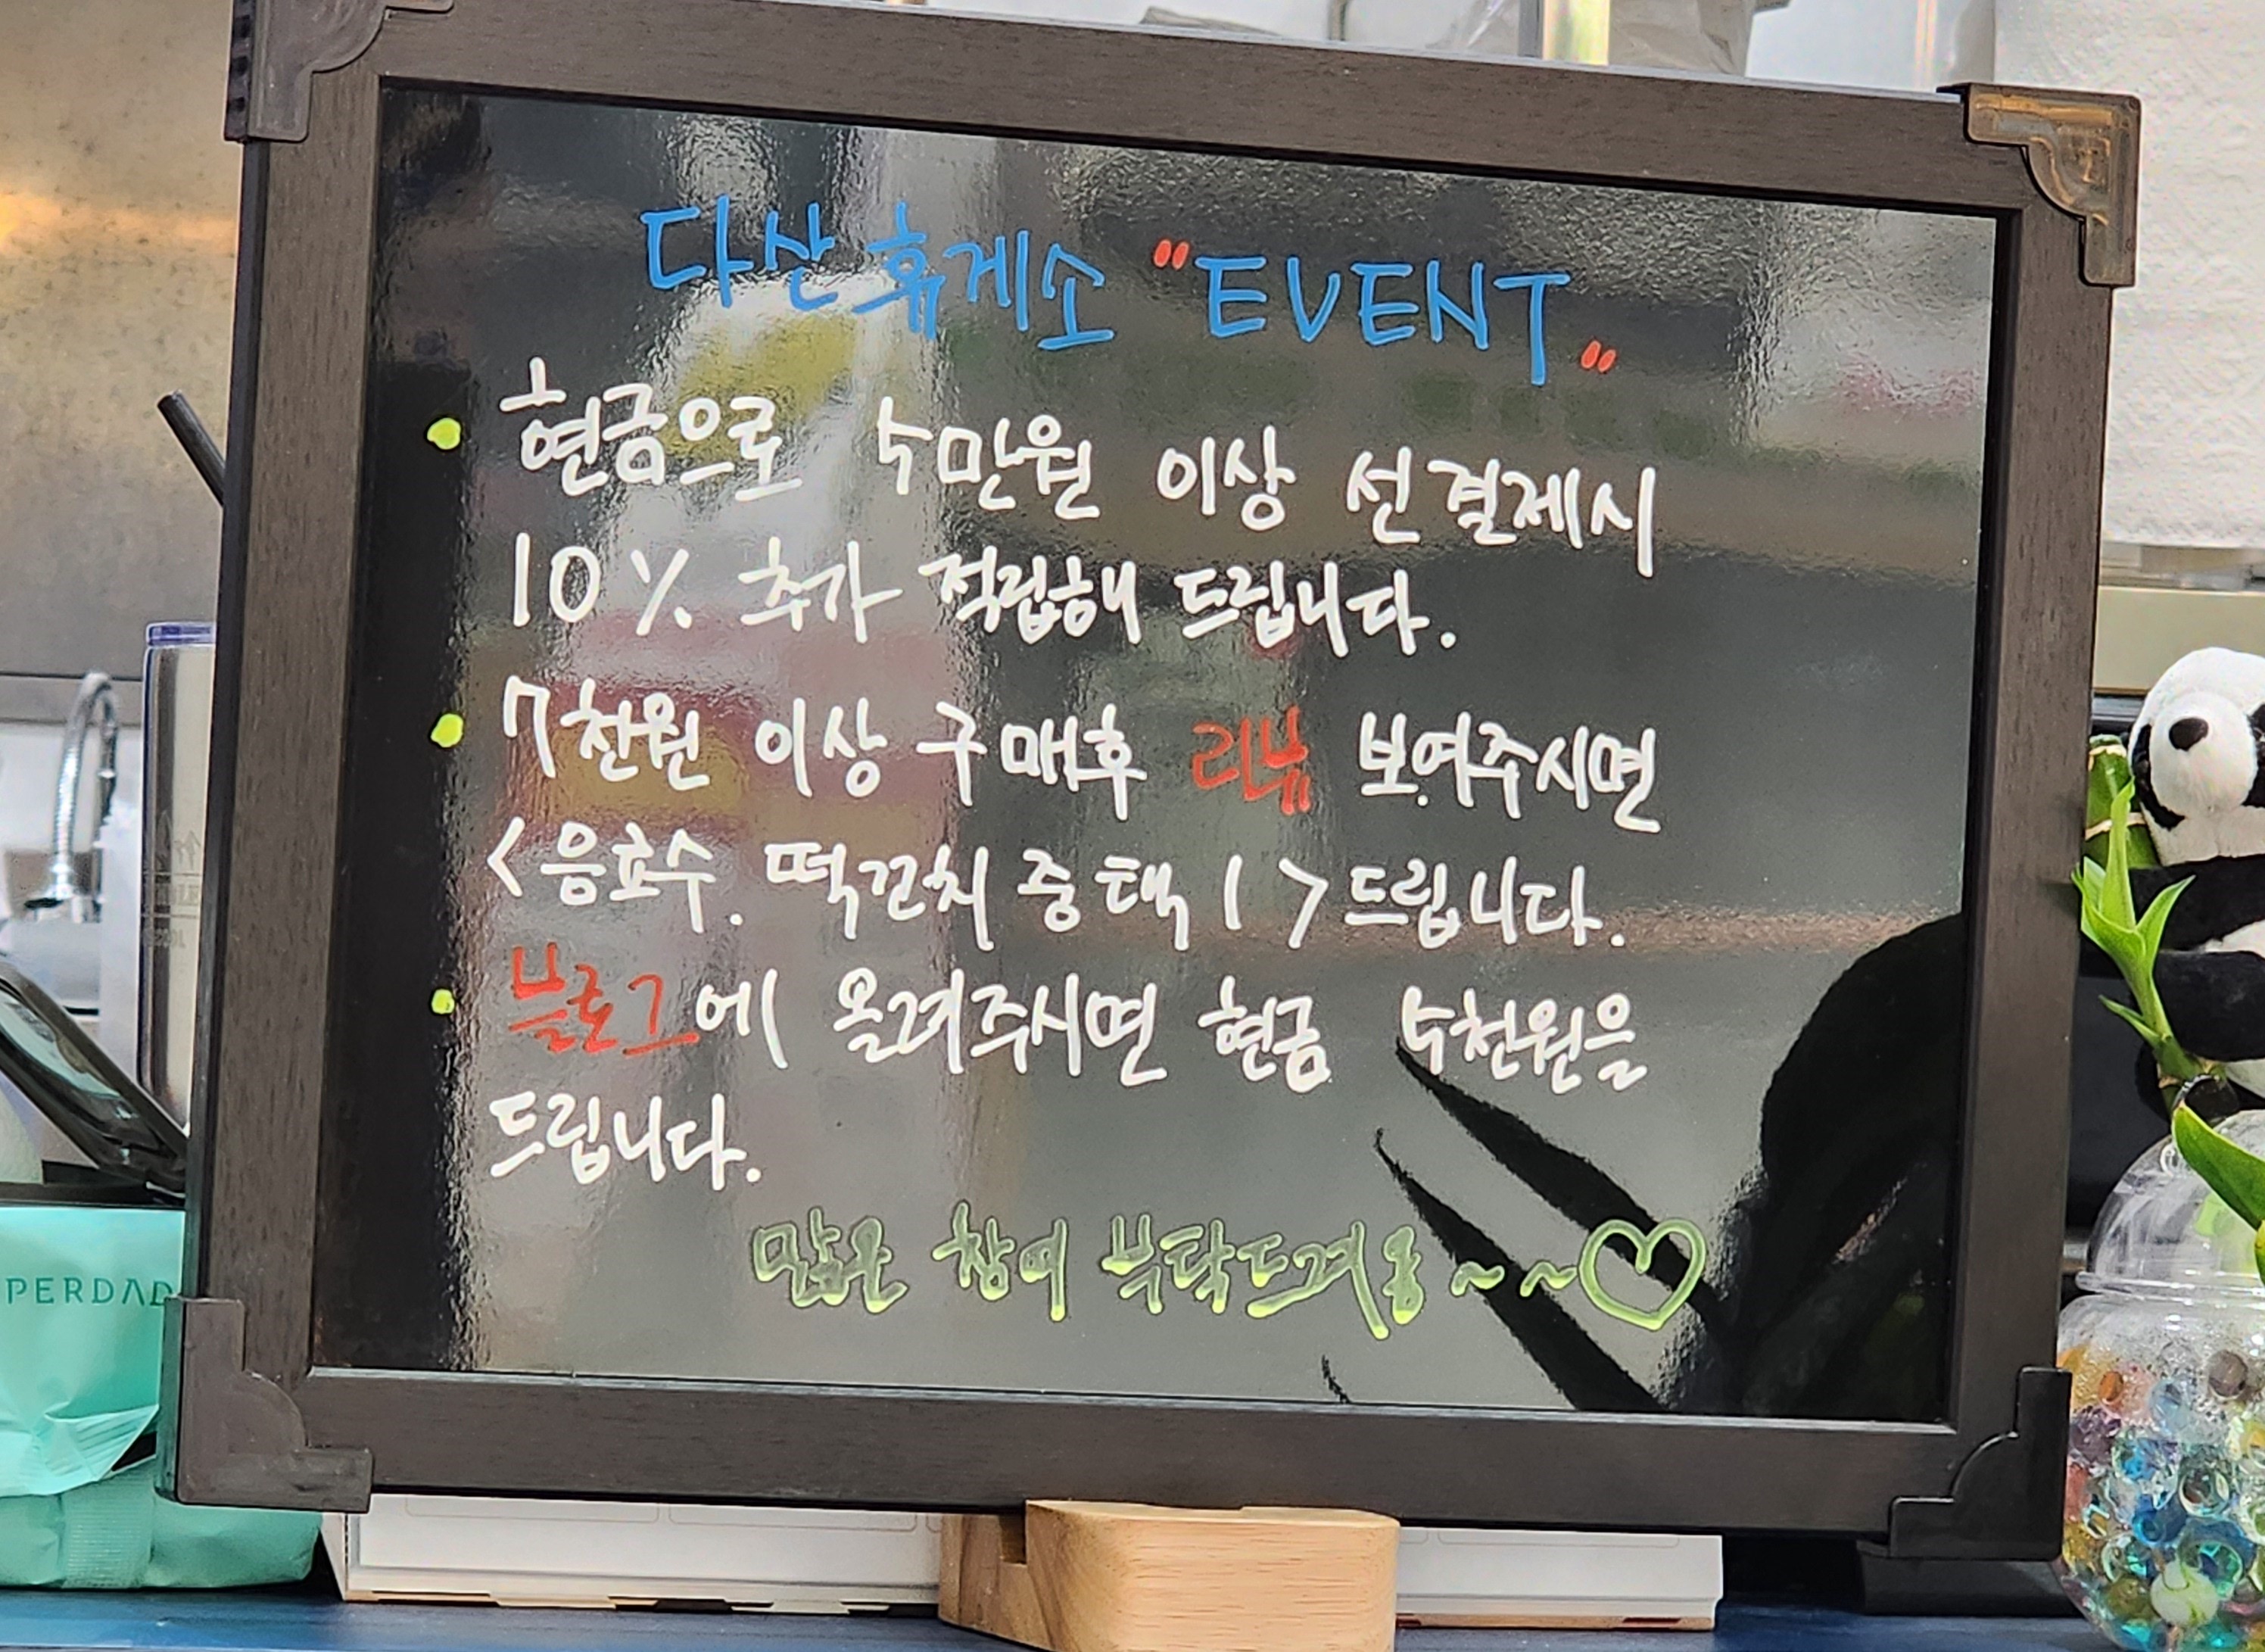 다산휴게소 "EVENT"
• 현금으로 5만원 이상 선결제시
10% 추가 적립해 드립니다.
• 7천원 이상 구매후 리뷰 보여주시면
<음료수. 떡꼬치 중 택1> 드립니다.
• 블로그에 올려주시면 현금 5천원을
드립니다.
많은 참여 부탁드려용~~♡
PERDAD